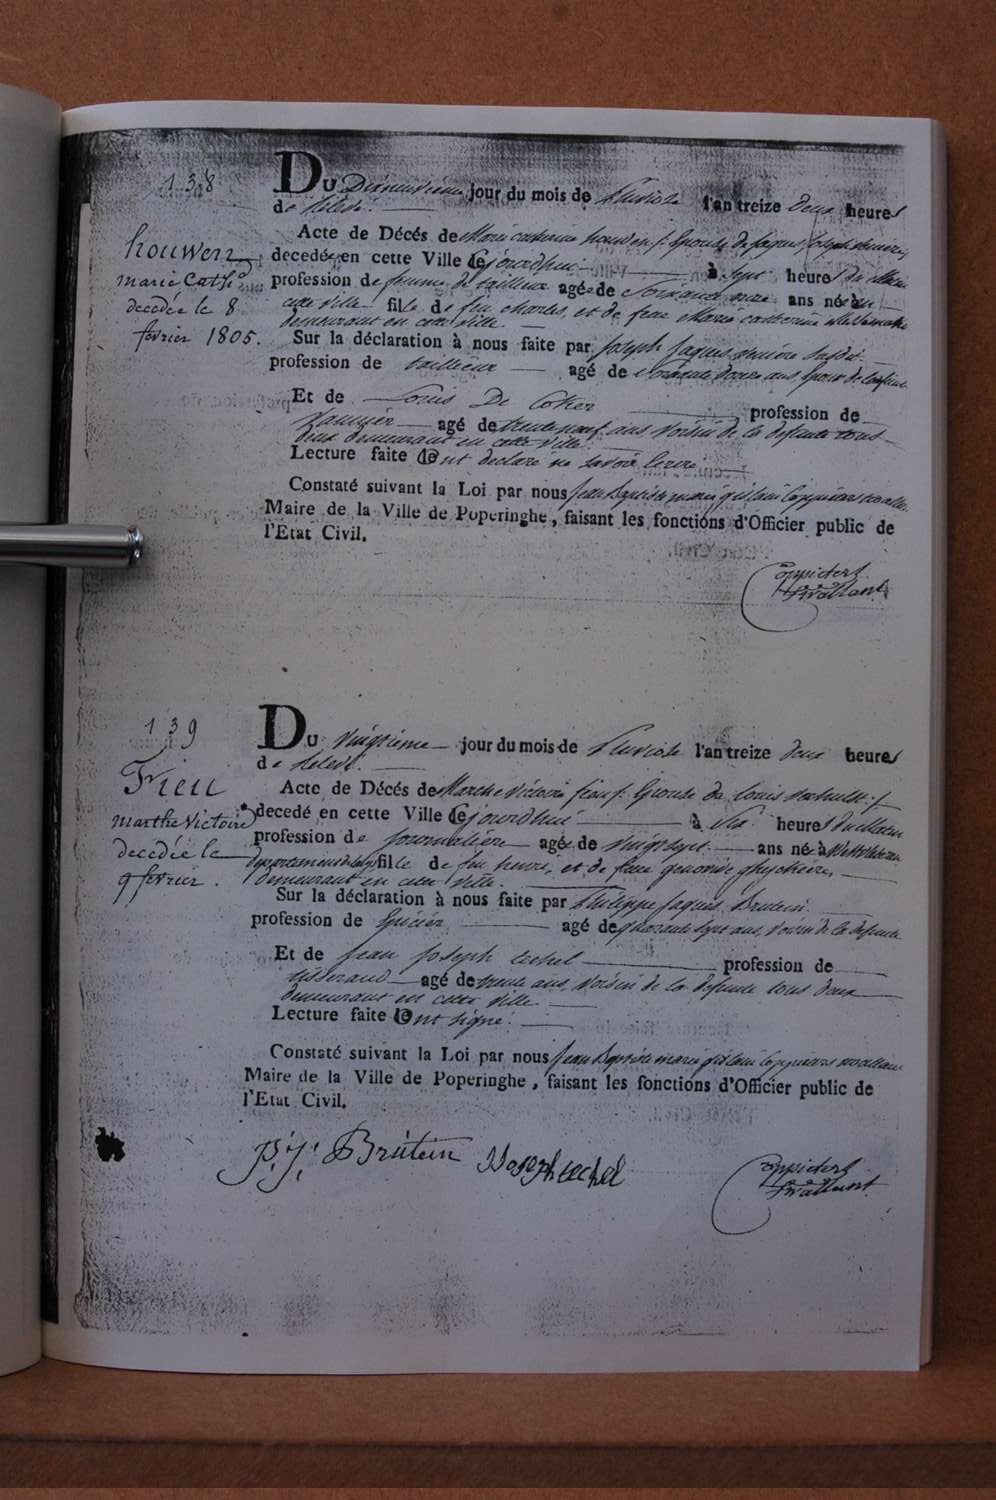 138
houwen
marie Cath
decedée le 8
fevrier 1805.
Du Dixneuvieme jour du mois de Pluviose l'an treize deux heures
de relevé.
Acte de Décés de Marie catherine houwen f. Epouse de Jaques Joseph
decedée en cette Ville cejourdhui à sept heures du Matin
profession de femme de tailleur agée de Soixante onze ans née à
cette ville fille de feu charles, et de feue Marie catherine
demeurant en cette ville
Sur la déclaration à nous faite par Joseph Jaques
profession de tailleur agé de Soixante douze ans Epoux de la defunte
Et de Louis De Coker profession de
agé de trente neuf ans Voisin de la defunte tous
deux demeurant en cette ville
Lecture faite ont declaré ne savoir ecrire
Constaté suivant la Loi par nous Jean Baptiste marie
Maire de la Ville de Poperinghe, faisant les fonctions d'Officier public de
l'Etat Civil.
139
Frieu
marthe Victoire
decedée le
9 fevrier.
Du Vingtieme jour du mois de Pluviose l'an treize deux heures
de relevé.
Acte de Décés de Marthe Victoire frieu f. Epouse de Louis
decedé en cette Ville cejourdhui à Six heures du Matin
profession de Journalière agée de Vingt sept ans née à
departement de la lys fille de feu henri, et de feue
demeurant en cette ville.
Sur la déclaration à nous faite par Philippe Jaques Brutein
profession de Epicier agé de quarante sept ans, voisin de la defunte
Et de Jean Joseph Lechel profession de
tisserand agé de trente ans, Voisin de la defunte tous deux
demeurant en cette ville.
Lecture faite ont signé.
Constaté suivant la Loi par nous Jean Baptiste marie
Maire de la Ville de Poperinghe, faisant les fonctions d'Officier public de
l'Etat Civil.
P. J. Brutein